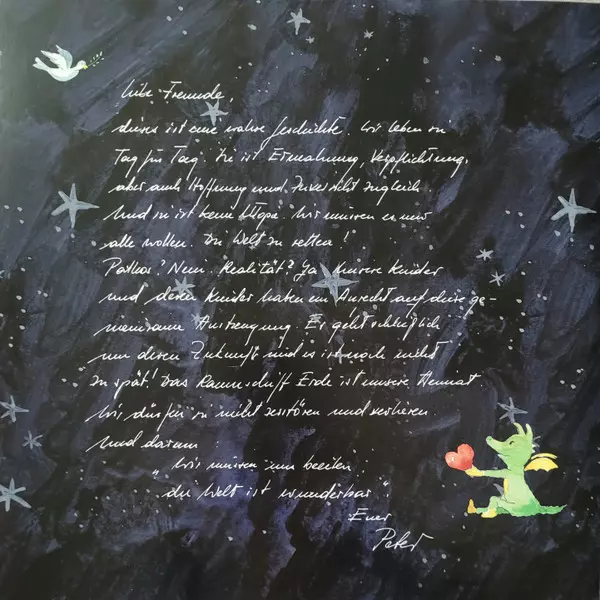 Liebe Freunde,
dieses ist eine wahre Geschichte. Wir leben sie
Tag für Tag. Sie ist Ermahnung, Verpflichtung,
aber auch Hoffnung und Zuversicht zugleich.
Und sie ist keine Utopie. Wir müssen es nur
alle wollen. Die Welt zu retten!
Pathos? Nein. Realität? Ja. Unsere Kinder
und deren Kinder haben ein Anrecht auf diese ge-
meinsame Anstrengung. Es geht schließlich
um deren Zukunft und es ist noch nicht
zu spät! Das Raumschiff Erde ist unsere Heimat
Wir dürfen sie nicht zerstören und verlieren
Und darum:
„Wir müssen uns beeilen
die Welt ist wunderbar"
Euer
Peter